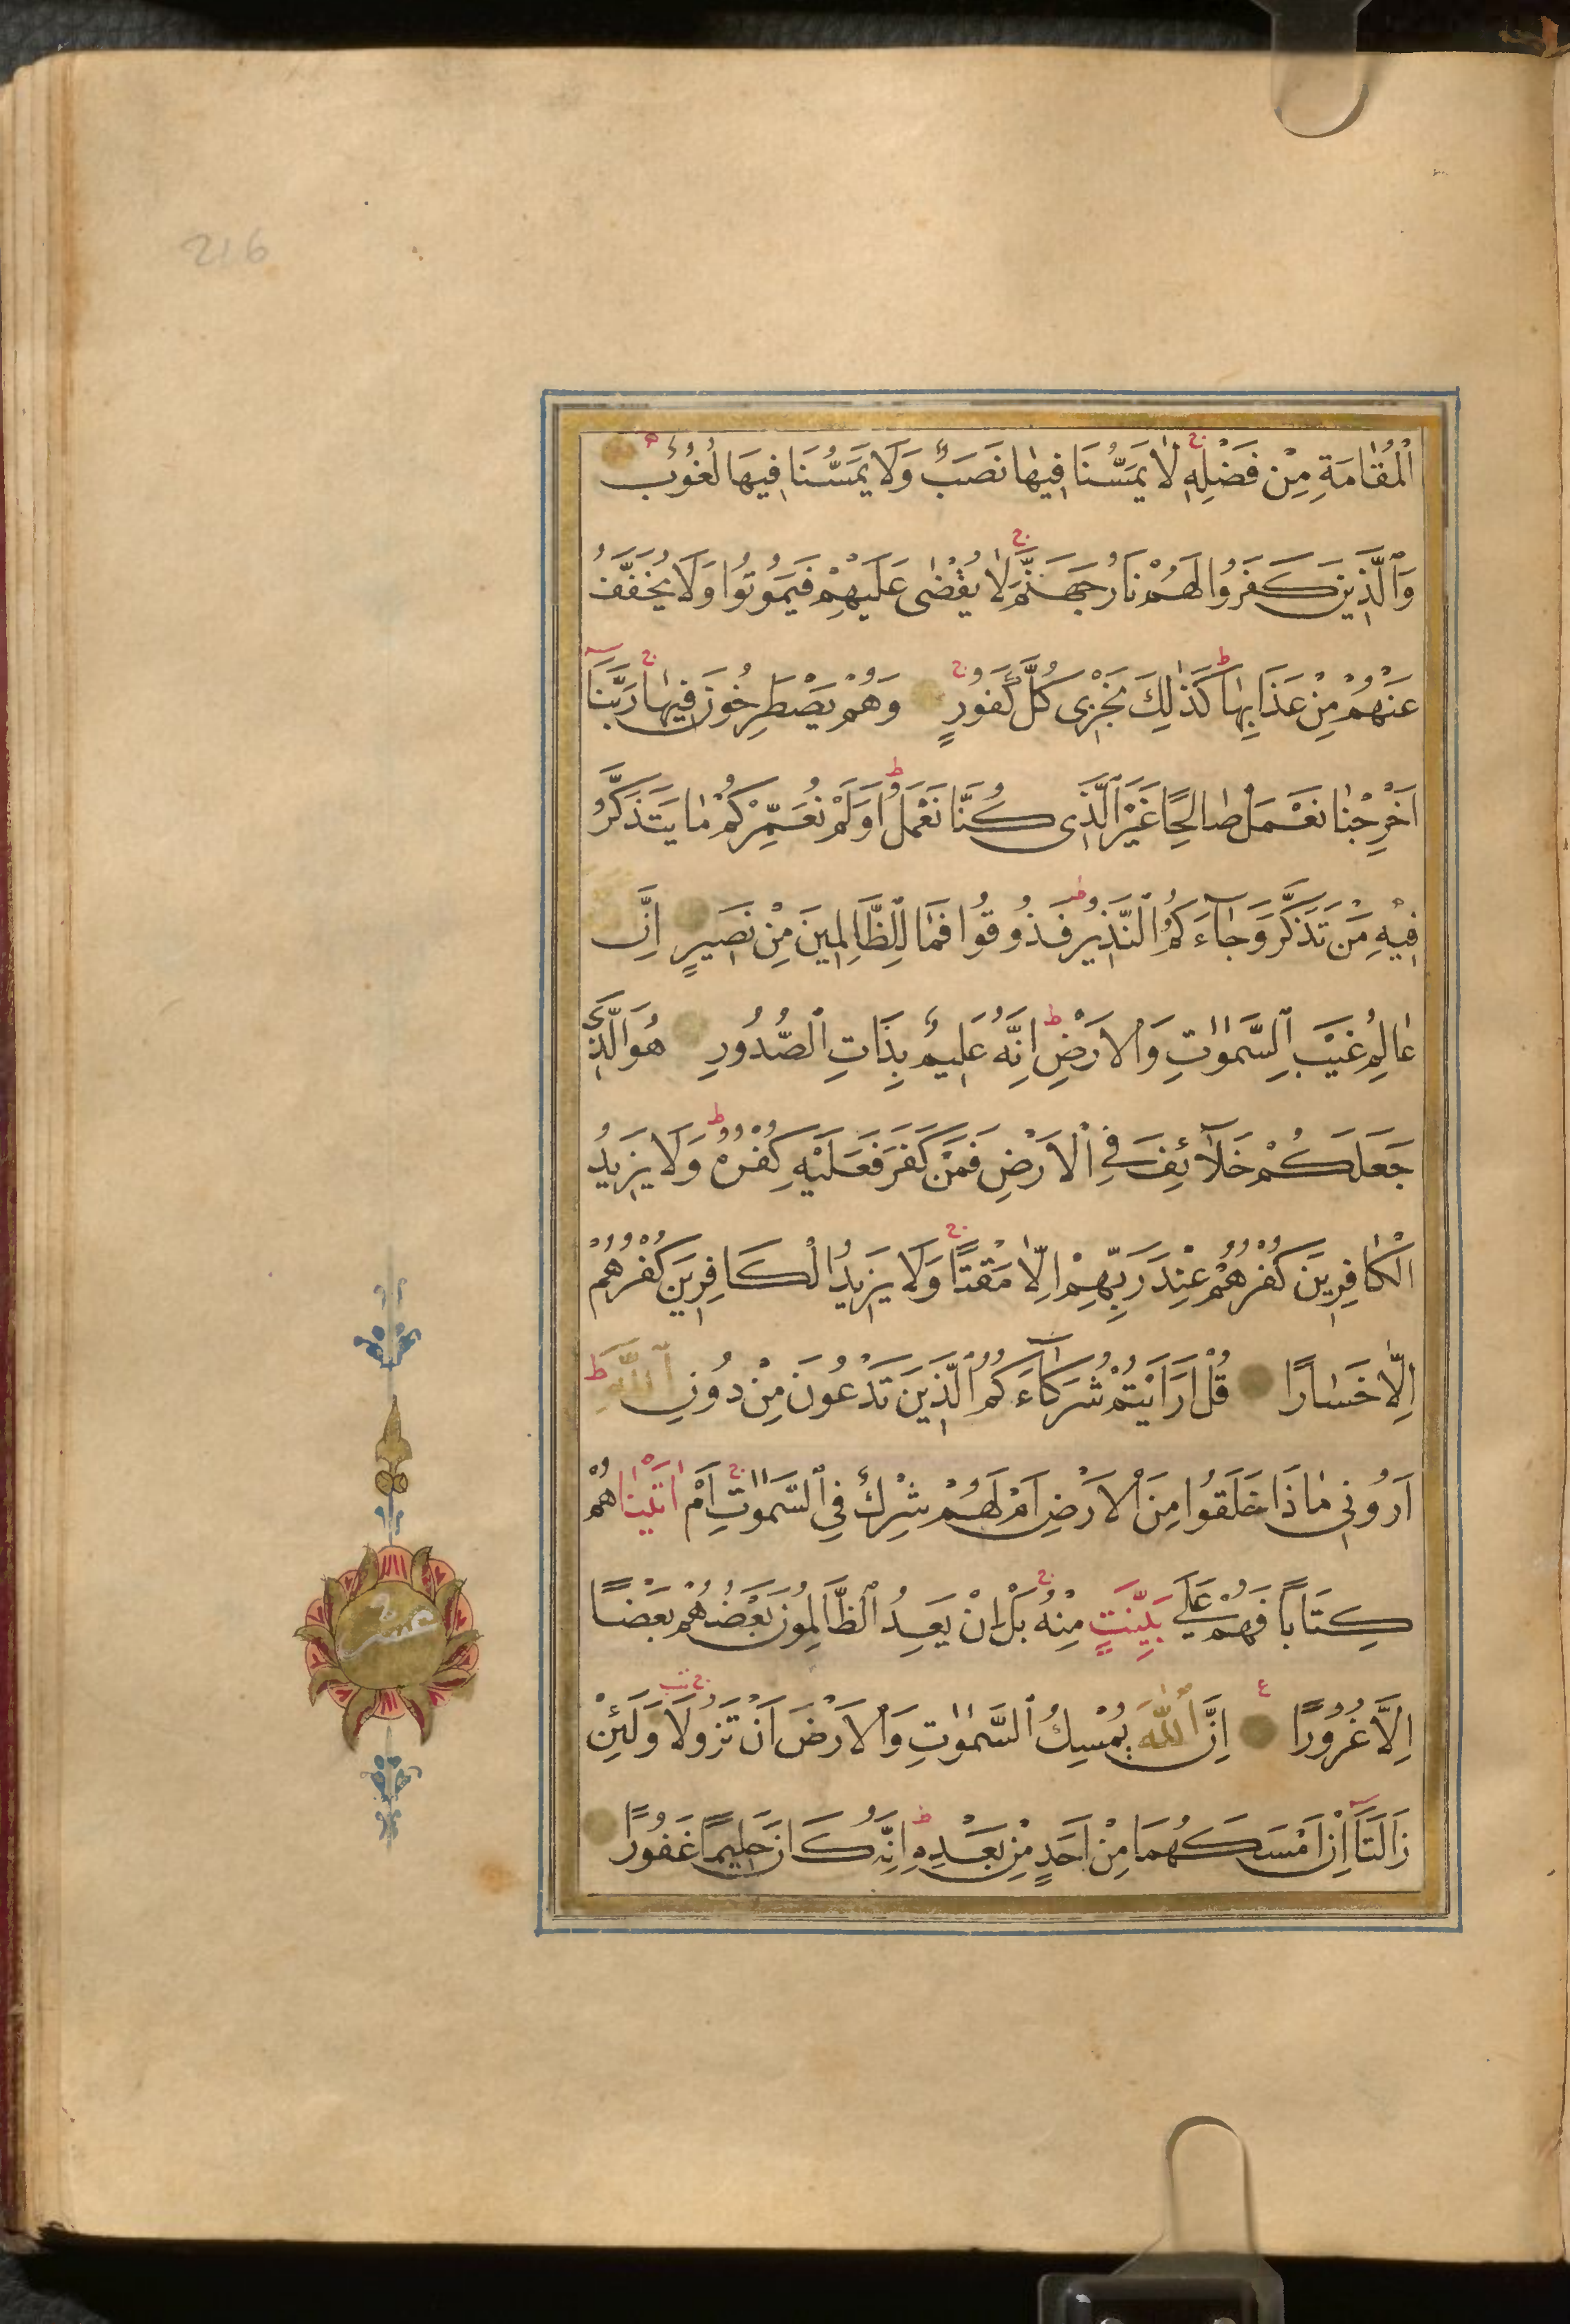 216
الْمُقَامَةِ مِنْ فَضْلِهِ ج لَا يَمَسُّنَا فِيهَا نَصَبٌ وَلَا يَمَسُّنَا فِيهَا لُغُوبٌ
وَٱلَّذِينَ كَفَرُوا لَهُمْ نَارُ جَهَنَّمَ ج لَا يُقْضٰى عَلَيْهِمْ فَيَمُوتُوا وَلَا يُخَفَّفُ
عَنْهُمْ مِنْ عَذَابِهَا ط كَذٰلِكَ نَجْزِى كُلَّ كَفُورٍ ج وَهُمْ يَصْطَرِخُونَ فِيهَا ج رَبَّنَٓا
اَخْرِجْنَا نَعْمَلْ صَالِحًا غَيْرَ ٱلَّذِى كُنَّا نَعْمَلُ ط اَوَلَمْ نُعَمِّرْكُمْ مَا يَتَذَكَّرُ
فِيْهِ مَنْ تَذَكَّرَ وَجَآءَكُمُ ٱلنَّذِيرُ ط فَذُوقُوا فَمَا لِلظَّالِمِينَ مِنْ نَصِيرٍ اِنَّ
عَالِمُ غَيْبِ ٱلسَّمٰوَاتِ وَٱلْاَرْضِ ط اِنَّهُ عَلِيمٌ بِذَاتِ ٱلصُّدُورِ هُوَ الَّذِي
جَعَلَكُمْ خَلَآئِفَ فِي ٱلْاَرْضِ فَمَنْ كَفَرَ فَعَلَيْهِ كُفْرُهُ ط وَلَا يَزِيدُ
الْكَافِرِينَ كُفْرُهُمْ عِنْدَ رَبِّهِمْ اِلَّا مَقْتًا ج وَلَا يَزِيدُ الْكَافِرِينَ كُفْرُهُمْ
اِلَّا خَسَارًا قُلْ اَرَاَيْتُمْ شُرَكَآءَكُمُ ٱلَّذِينَ تَدْعُونَ مِنْ دُونِ ٱللّٰهِ ط
اَرُونِي مَاذَا خَلَقُوا مِنَ ٱلْاَرْضِ اَمْ لَهُمْ شِرْكٌ فِي ٱلسَّمٰوَاتِ ج اَمْ اٰتَيْنَاهُمْ
كِتَابًا فَهُمْ عَلٰي بَيِّنَتٍ مِنْهُ ج بَلْ اِنْ يَعِدُ ٱلظَّالِمُونَ بَعْضُهُمْ بَعْضًا
اِلَّا غُرُورًا ع اِنَّ ٱللّٰهَ يُمْسِكُ ٱلسَّمٰوَاتِ وَٱلْاَرْضَ اَنْ تَزُولَا ج وَلَئِنْ
زَالَتَٓا اِنْ اَمْسَكَهُمَا مِنْ اَحَدٍ مِنْ بَعْدِهِ ط اِنَّهُ كَانَ حَلِيمًا غَفُورًا
عشر